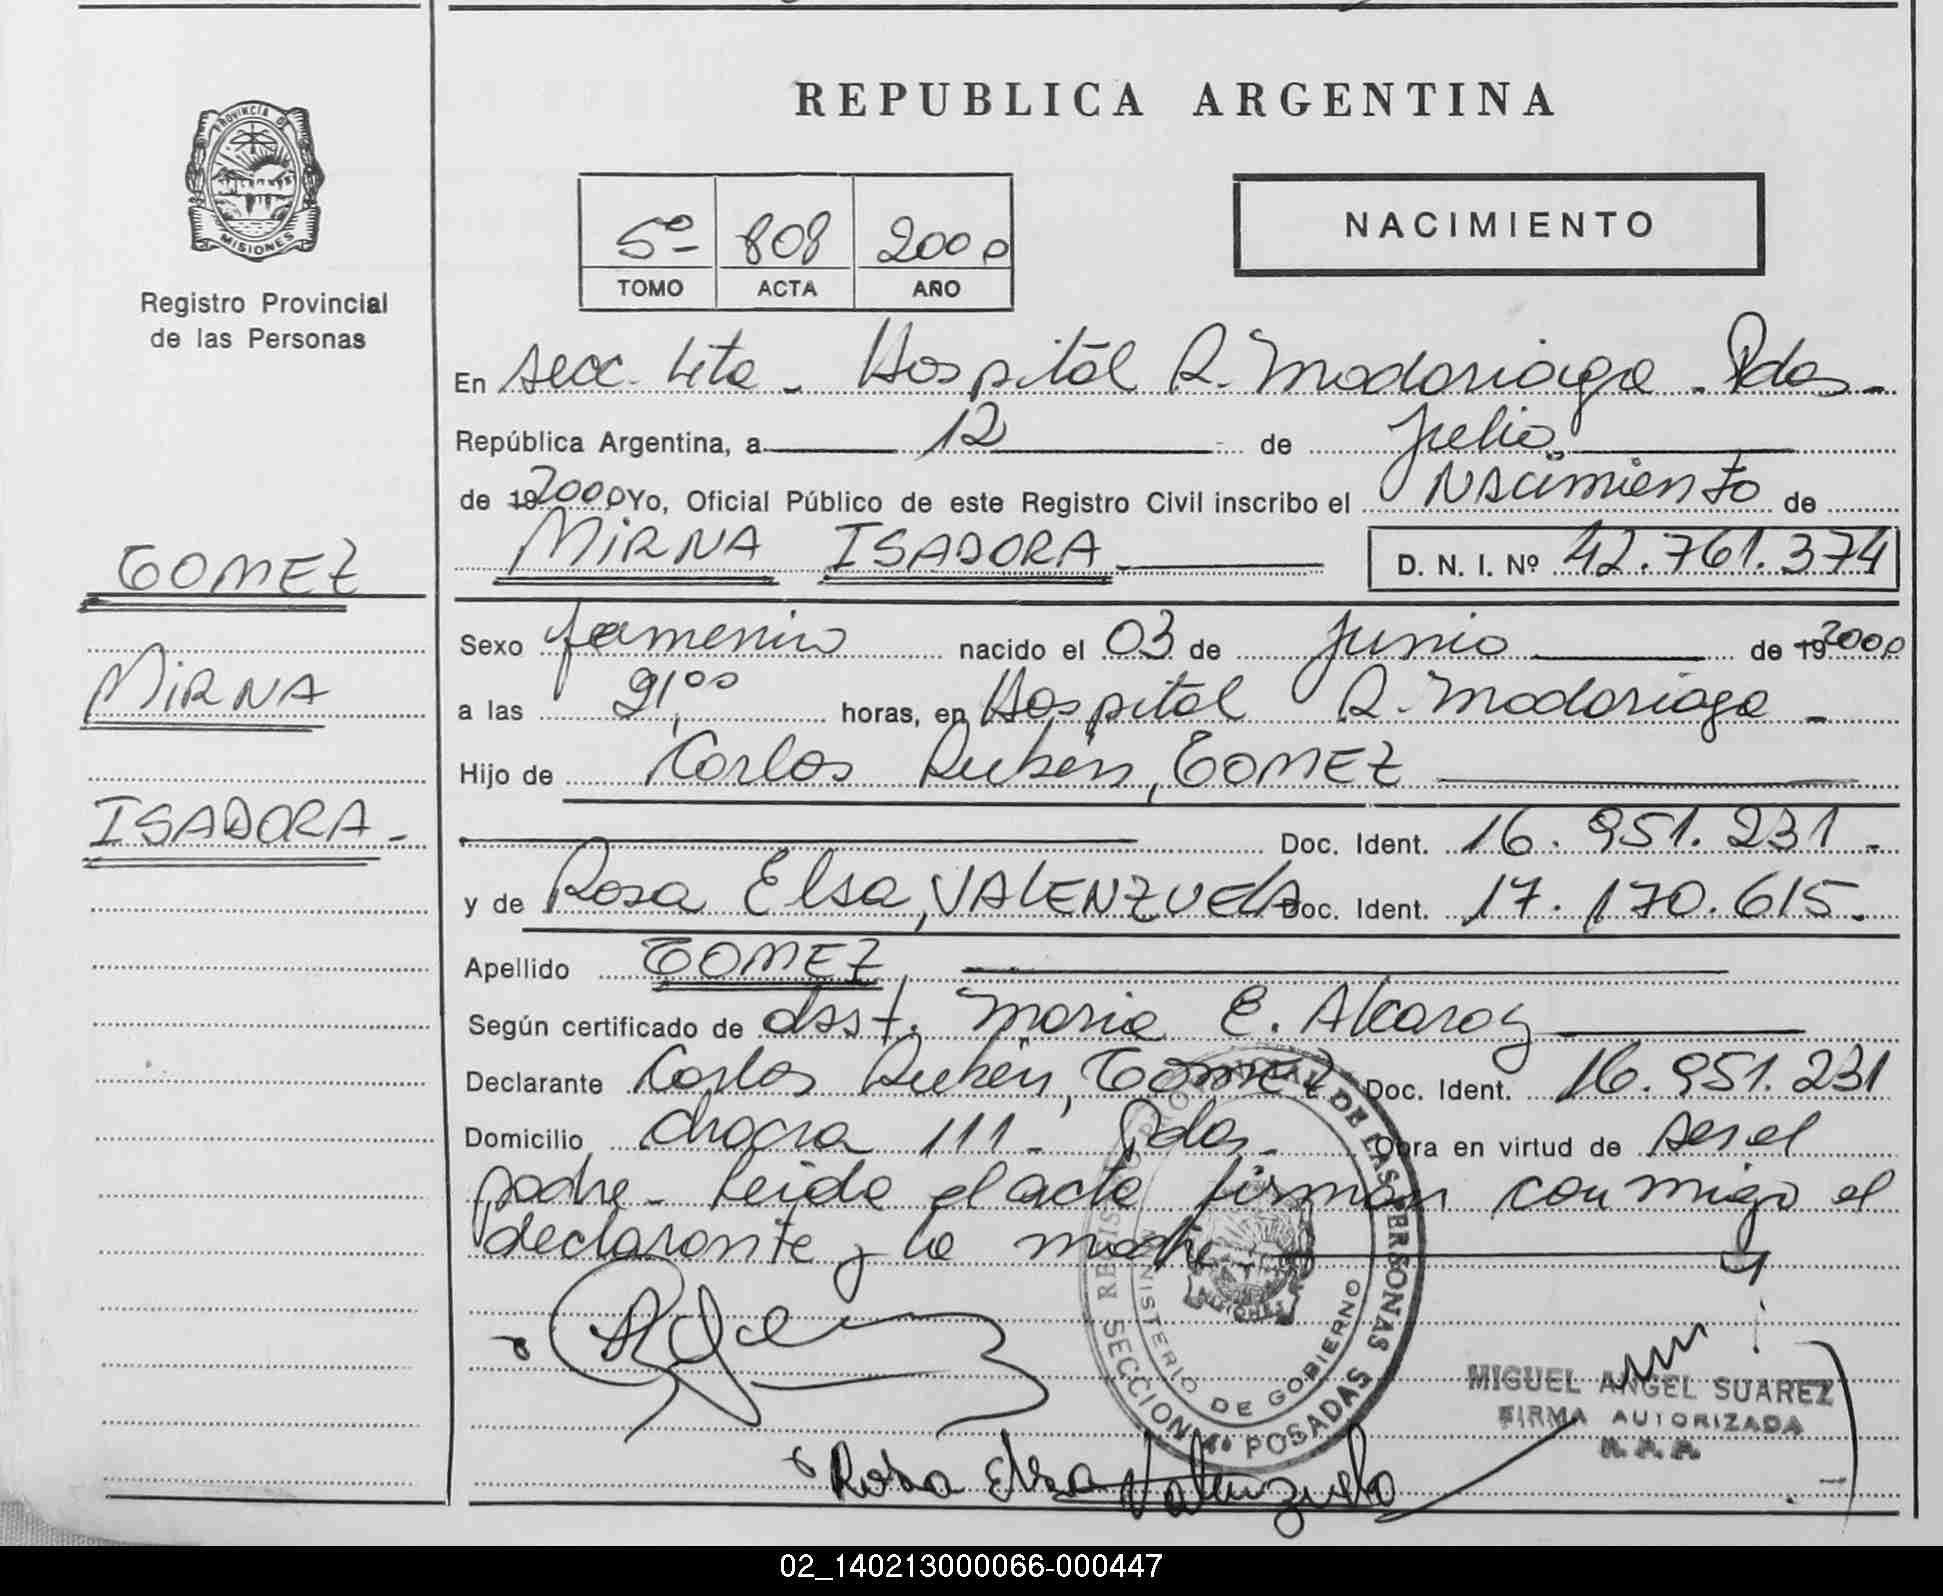 REPUBLICA ARGENTINA
PROVINCIA DE
MISIONES
Registro Provincial
de las Personas
5º 808 2000
TOMO ACTA AÑO
NACIMIENTO
En secc. 4ta - Hospital R. Madariaga - Pdas -
República Argentina, a 12 de Julio
de 19 2000 Yo, Oficial Público de este Registro Civil inscribo el Nacimiento de
MIRNA ISADORA D. N. I. Nº 42.761.374
GOMEZ
MIRNA
ISADORA -
Sexo femenino nacido el 03 de Junio de 19 2000
a las 21,00 horas, en Hospital R. Madariaga -
Hijo de Carlos Rubén, GOMEZ
Doc. Ident. 16.951.231 -
y de Rosa Elsa, VALENZUELA Doc. Ident. 17.170.615 -
Apellido GOMEZ
Según certificado de obst. Maria E. Alcaraz
Declarante Carlos Rubén, GOMEZ Doc. Ident. 16.951.231
Domicilio chacra 111 - Pdas - Obra en virtud de ser el
padre - Leida el acta firman conmigo el
declarante y la madre
REGISTRO PROVINCIAL DE LAS PERSONAS
MINISTERIO DE GOBIERNO
SECCION 4º POSADAS
MISIONES
MIGUEL ANGEL SUAREZ
FIRMA AUTORIZADA
Rosa Elsa Valenzuela
02_140213000066-000447